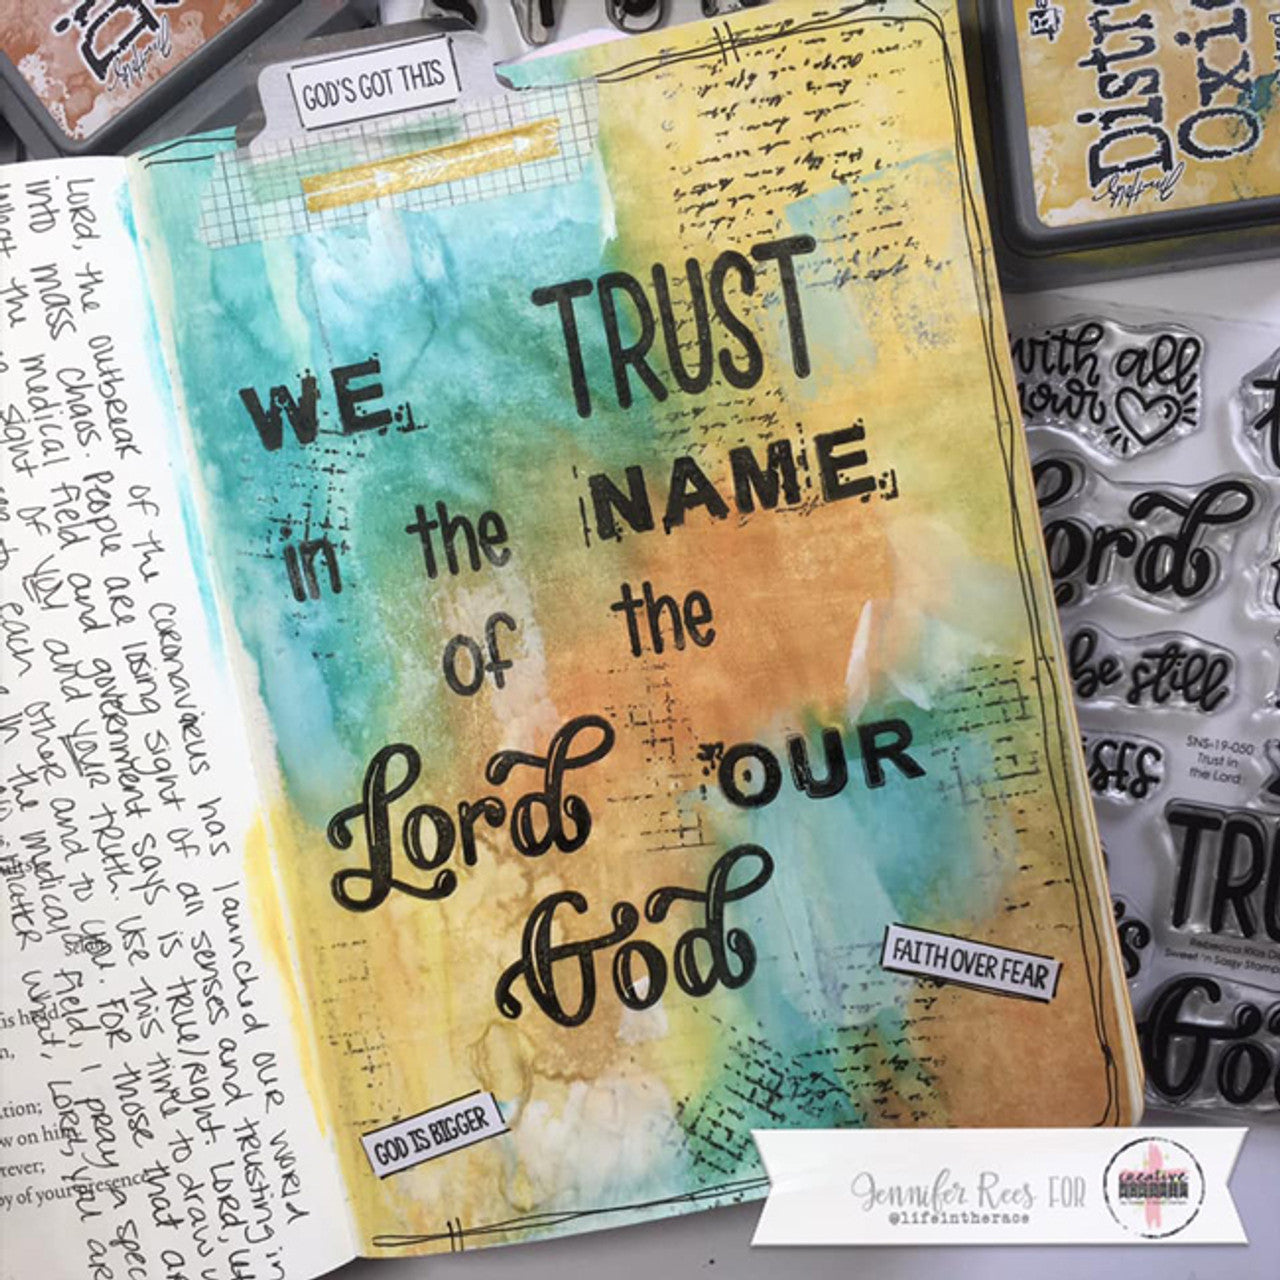 GOD'S GOT THIS
WE TRUST
in the NAME
of the
Lord OUR
God
FAITH OVER FEAR
GOD IS BIGGER
LORD, the outbreak of the coronavirus has launched our world
into mass chaos. People are losing sight of all senses and trusting in
what the medical field and government says is true/right. Lord, let
sight of you and your truth. Use this time to draw
each other and to you. For those that
in the medical field, I pray
matter what, Lord, you are
is head
tion;
w on him
rever;
oy of your presence
Distr
Oxi
with all
your
Lord
be still
SNS-19-050
Trust in
the Lord
TRU
Sweet 'n Sassy Stamp
God
Jennifer Rees FOR
@lifeintherace
creative